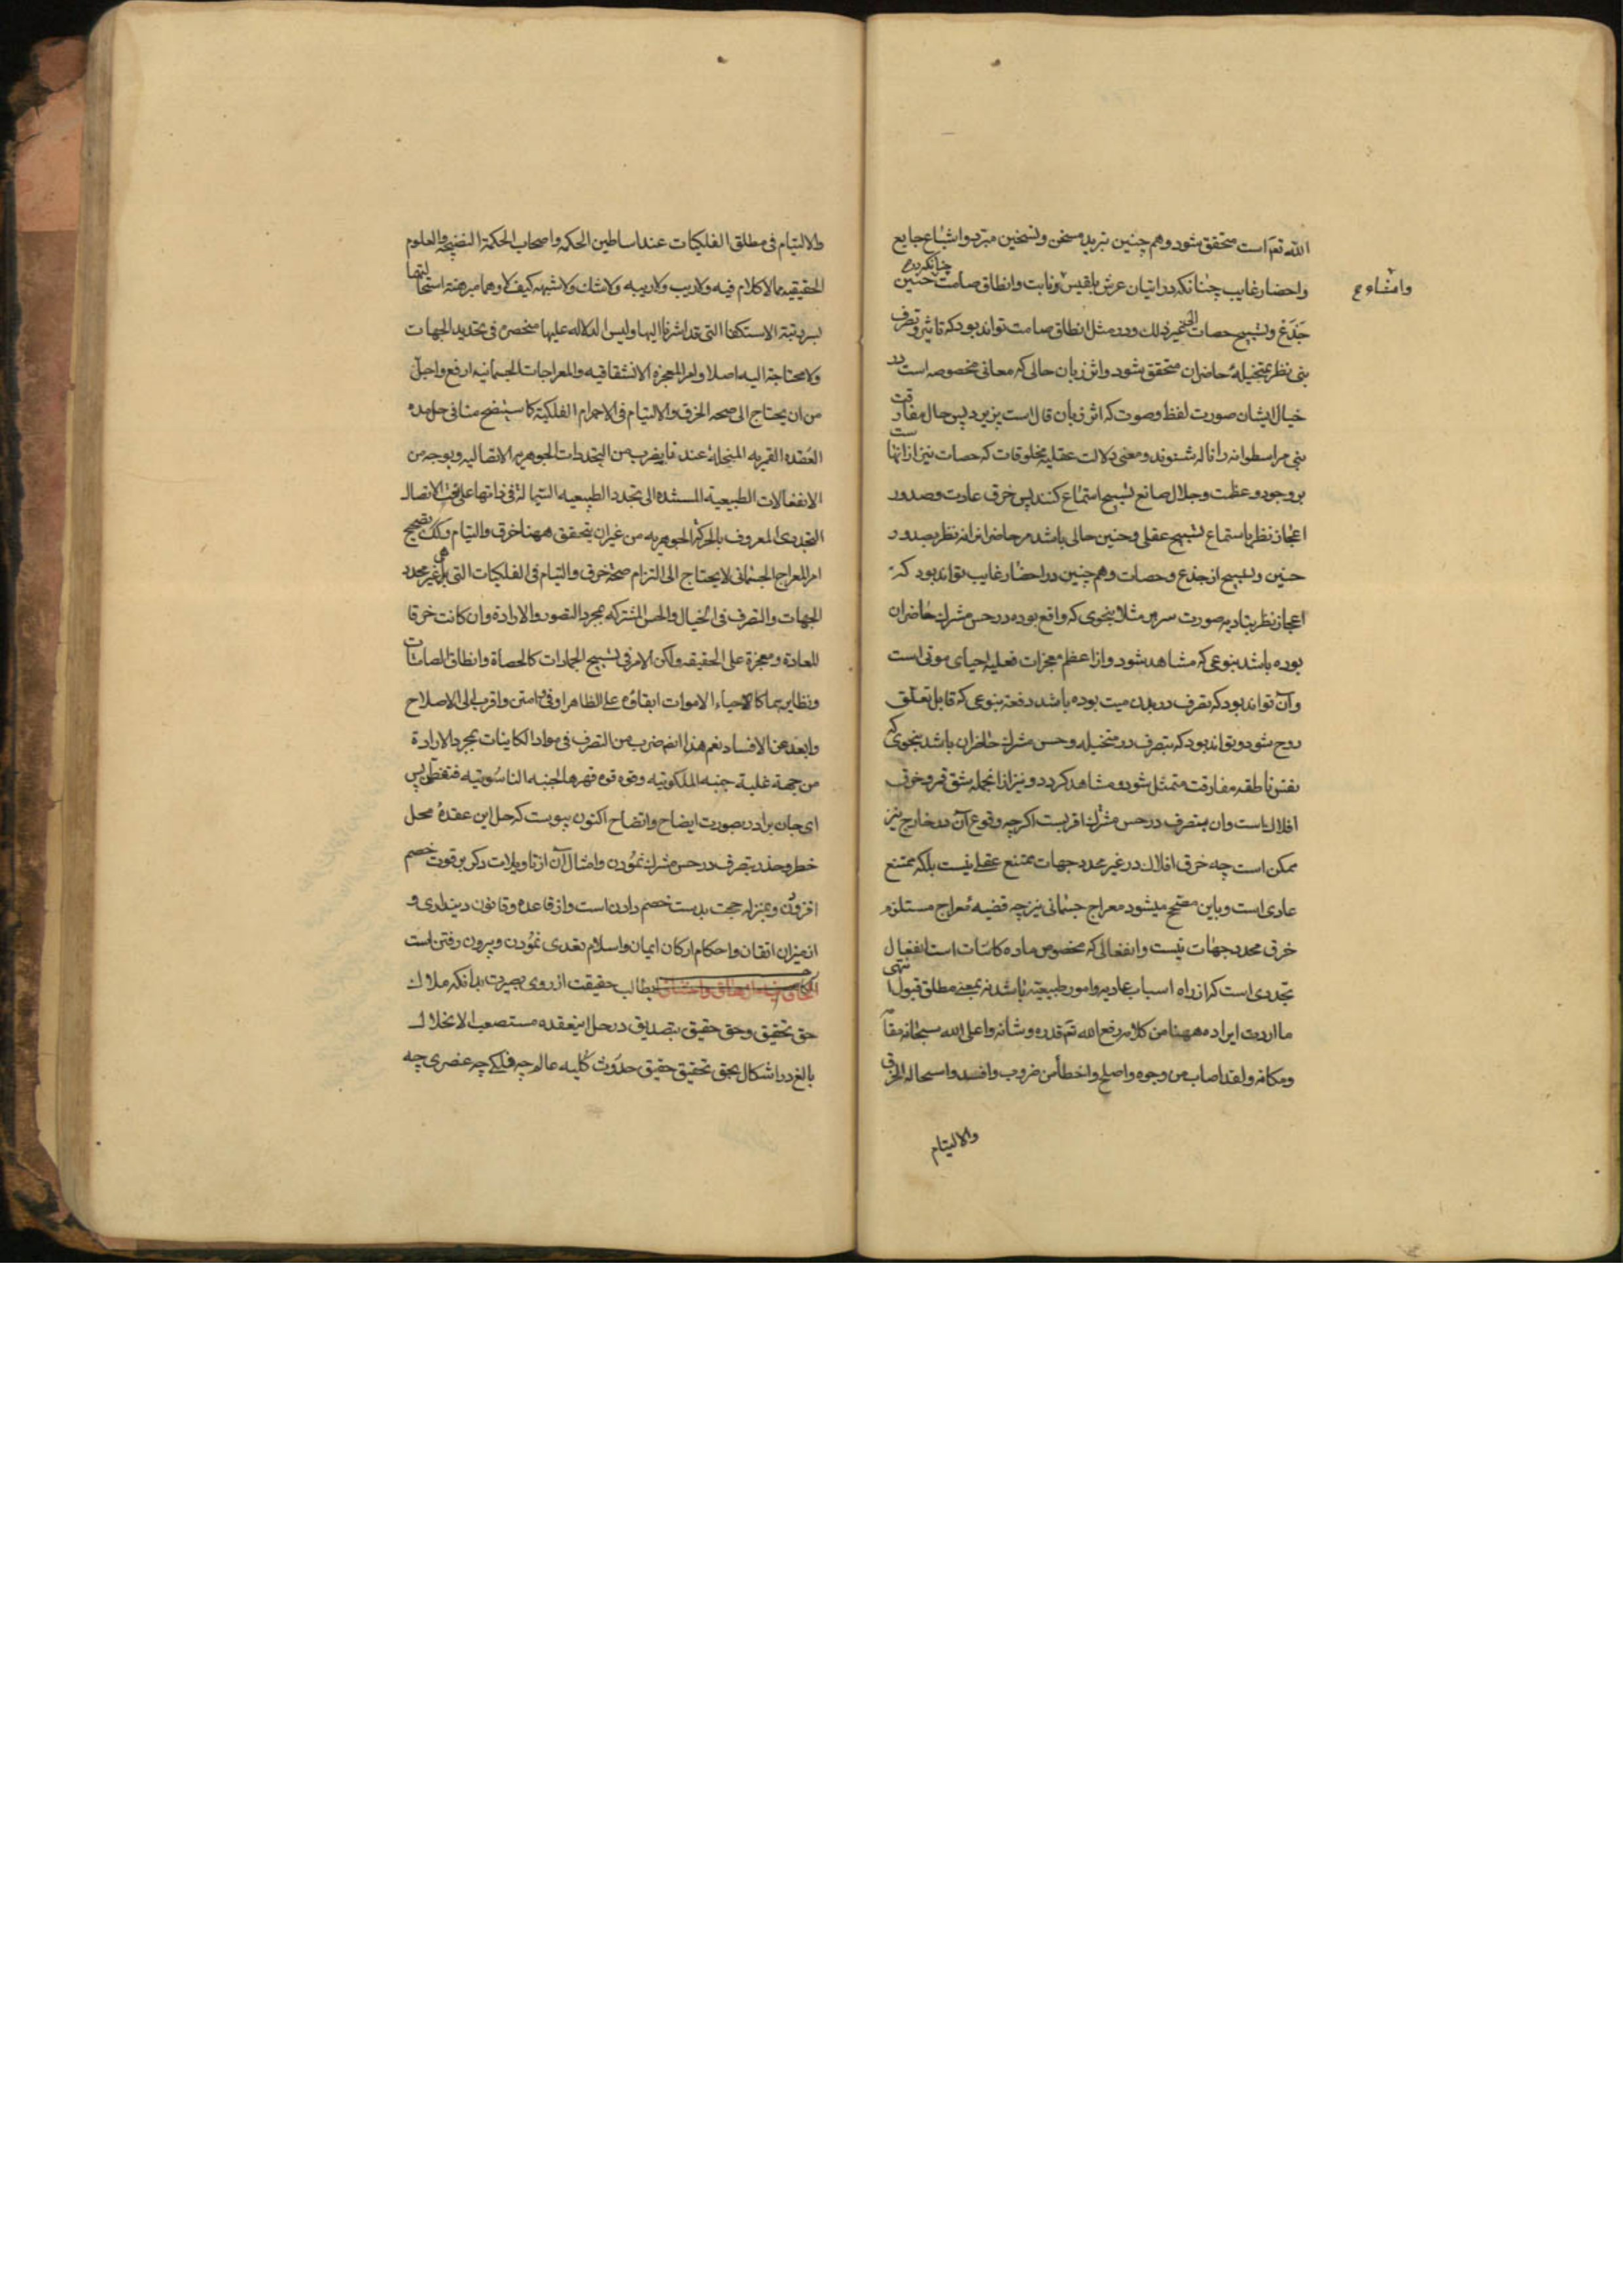 الله تعالی است متحقق شود و هم چنین تبرید مسخن و تسخین مبرد و اشباع جایع
وامشاء ع
واحضار غایب چنانکه در اتیان عرش بلقیس و نابت وانطاق صامت چنانکه در حنین
جذع و تسبیح حصات الی غیر ذلک و در مثل انطاق صامت تواند بود که تاثیر و تصرف
نبی نظر بمتخیلهٔ حاضران متحقق شود و اثر زبان حالی که معانی مخصوصه است در
خیال ایشان صورت لفظ و صوت که اثر زبان قال است پزیرد پس حال مفارقت
نبی مر اسطوانه را ناله شنوند و معنی دلالت عقلیه مخلوقات که حصات نیز از آنهاست
بر وجود و عظمت و جلال صانع تسبیح استماع کنند پس خرق عادت و صدور
اعجاز نظر باستماع تسبیح عقلی و حنین حالی باشد مر حاضرانرا نه نظر بصدور
حنین و تسبیح از جذع و حصات و هم چنین در احضار غایب تواند بود که
اعجاز نظر بتادیه صورت سریر مثلا بنحوی که واقع بوده در حس مشترک حاضران
بوده باشد بنوعی که مشاهد شود و از اعظم معجزات فعلیه احیای موتی است
و آن تواند بود که تصرف در بدن میت بوده باشد دفعة بنوعی که قابل تعلق
روح شود و تواند بود که بتصرف در متخیله و حس مشترک حاضران باشد بنحوی که
نفس ناطقه مفارقت متمثل شود و مشاهد کردد و نیز از انجمله شق قمر و خرق
افلاک است و ان بتصرف در حس مشترک اقربست اکرچه وقوع آن در خارج نیز
ممکن است چه خرق افلاک در غیر محدد جهات ممتنع عقلی نیست بلکه ممتنع
عادی است و باین مصحح میشود معراج جسمانی نیز چه قضیه معراج مستلزم
خرق محدد جهات نیست و انفعالی که مخصوص ماده کائنات است انفعال
تجددی است که از راه اسباب عادیه و امور طبیعیه باشد نه بمعنی مطلق قبول انتهی
ما اردت ایراده ههنا من کلامه رفع الله تعالی قدره و شانه و اعلی الله سبحانه مقامه
و مکانه ولقد اصاب من وجوه و اصلح و اخطأ من ضروب و افسد و استحاله الخرق
والالتیام
والالتیام فی مطلق الفلکیات عند اساطین الحکمه و اصحاب الحکمة النضیجه والعلوم
الحقیقیه مما لا کلام فیه ولا ریب ولا ریبه ولا شک ولا شبهه کیف لا و هما مبرهنة استحالتهما
بسردیة الاستکفا التی قد اشرنا الیها ولیس الدلاله علیها منحصرة فی تحدید الجهات
ولا محتاجة الیه اصلا و امر المعجزه الانشقاقیه والمعراجات الجسمانیه ارفع و اجل
من ان یحتاج الی صحه الخرق والالتیام فی الاجرام الفلکیة کما سیتضح منا فی حل هذه
العقده القمریه المنحلة عندنا بضرب من التجددات الجوهریه الاتصالیه و بوجه من
الانفعالات الطبیعیة المستنده الی تجدد الطبیعه السیالة فی ذاتها علی نحو الاتصال
التجددی المعروف بالحرکة الجوهریه من غیر ان یتحقق ههنا خرق والتیام وکذلک تصحیح
امر المعراج الجسمانی لا یحتاج الی التزام صحة خرق والتیام فی الفلکیات التی هی غیر محدد
الجهات والتصرف فی الخیال والحس المشترک بمجرد التصور والاراده وان کانت خرقا
للعادة و معجزة علی الحقیقه ولکن الامر فی تسبیح الجمادات کالحصاة و انطاق الصامتات
و نظایرهما کالاحیاء الاموات ابقاؤه علی الظاهر اوفق و امتن و اقرب الی الاصلاح
و ابعد عن الافساد نعم هذا انه ضرب من التصرف فی مواد الکاینات بمجرد الارادة
من جهة غلبة جنبه الملکوتیه و قوه قهرها الجنبه الناسوتیه فتفطن پس
ای جان برادر بصورت ایضاح و اتضاح اکنون پیوست که حل این عقده محل
خطر و حذر بتصرف در حس مشترک نمودن و امثال آن از تاویلات دکر بر قوت خصم
افزودن و بمنزله حجت بدست خصم دادن است و از قاعده و قانون دینداری و
از میزان اتقان و احکام ارکان ایمان و اسلام تعدی نمودن و بیرون رفتن است
طالب حقیقت از روی بصیرت بدانکه ملاک
حق تحقیق و حق حقیق بتصدیق در حل اینعقده مستصعب الانحلال
بالغ در اشکال بحق تحقیق حقیق حدوث کلیه عالم چه فلکی چه عنصری چه